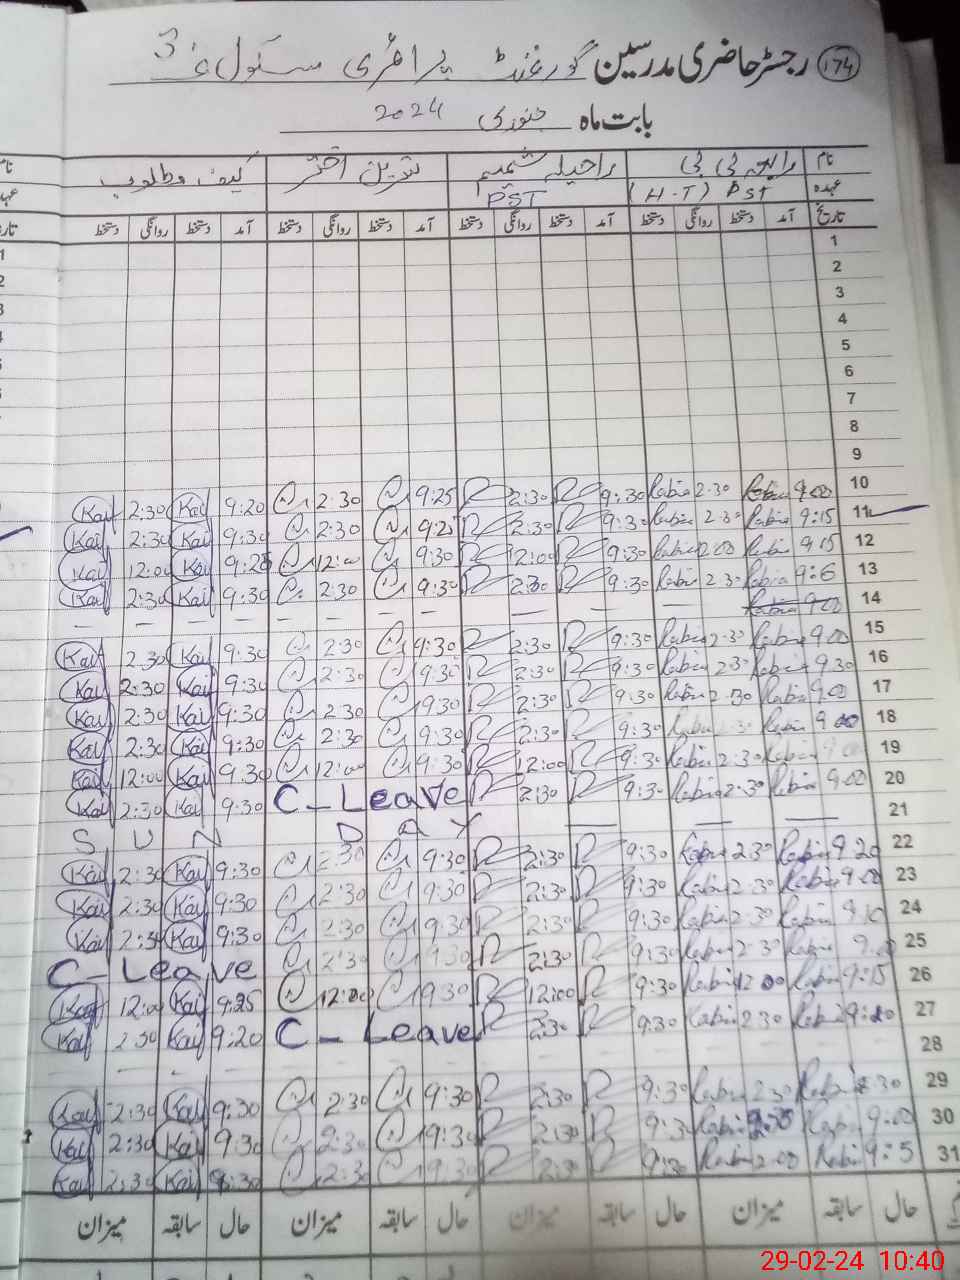 174 رجسٹر حاضری مدرسین گورنمنٹ پرائمری سکول نمبر 3
بابت ماہ جنوری 2024
نام رابعہ بی بی راحیلہ شمیم نسرین اختر
عہدہ PST (H-T) PST
تاریخ آمد دستخط روانگی دستخط آمد دستخط روانگی دستخط آمد دستخط روانگی دستخط آمد دستخط روانگی دستخط
1
2
3
4
5
6
7
8
9
10 9:00 Rabia 2:30 Rabia 9:30 2:30 9:25 2:30 9:20 Kai 2:30 Kai
11 9:15 Rabia 2:30 Rabia 9:30 2:30 9:25 2:30 9:30 Kai 2:30 Kai
12 9:15 Rabia 2:00 Rabia 9:30 2:00 9:30 12:00 9:25 Kai 12:00 Kai
13 Rabia 2:30 Rabia 9:30 2:30 9:30 2:30 9:30 Kai 2:30 Kai
14 9:00 Rabia — — — — — — — —
15 9:00 Rabia 2:30 Rabia 9:30 2:30 9:30 2:30 9:30 Kai 2:30 Kai
16 9:30 Rabia 2:30 Rabia 9:30 2:30 9:30 2:30 9:30 Kai 2:30 Kai
17 9:00 Rabia 2:30 Rabia 9:30 2:30 9:30 2:30 9:30 Kai 2:30 Kai
18 9:00 Rabia 2:30 Rabia 9:30 2:30 9:30 2:30 9:30 Kai 2:30 Kai
19 9:00 Rabia 2:30 Rabia 9:30 12:00 9:30 12:00 9:30 Kai 12:00 Kai
20 9:00 Rabia 2:30 Rabia 9:30 2:30 C-Leave 9:30 Kai 2:30 Kai
21 — — — S U N D A Y
22 9:20 Rabia 2:30 Rabia 9:30 2:30 9:30 2:30 9:30 Kai 2:30 Kai
23 9:00 Rabia 2:30 Rabia 9:30 2:30 9:30 2:30 9:30 Kai 2:30 Kai
24 9:10 Rabia 2:30 Rabia 9:30 2:30 9:30 2:30 9:30 Kai 2:30 Kai
25 Rabia 2:30 Rabia 9:30 2:30 9:30 2:30 C-Leave
26 9:15 Rabia 12:00 Rabia 9:30 12:00 9:30 12:00 9:25 Kai 12:00 Kai
27 Rabia 2:30 Rabia 9:30 2:30 C-Leave 9:20 Kai 2:30 Kai
28
29 Rabia 2:30 Rabia 9:30 2:30 9:30 2:30 9:30 Kai 2:30 Kai
30 9:00 Rabia Rabia 9:30 2:30 9:30 2:30 9:30 Kai 2:30 Kai
31 9:5 Rabia 2:00 Rabia 9:30 2:30 9:30 2:30 9:30 Kai 2:30 Kai
حال سابقہ میزان حال سابقہ میزان حال سابقہ میزان حال سابقہ میزان
29-02-24 10:40